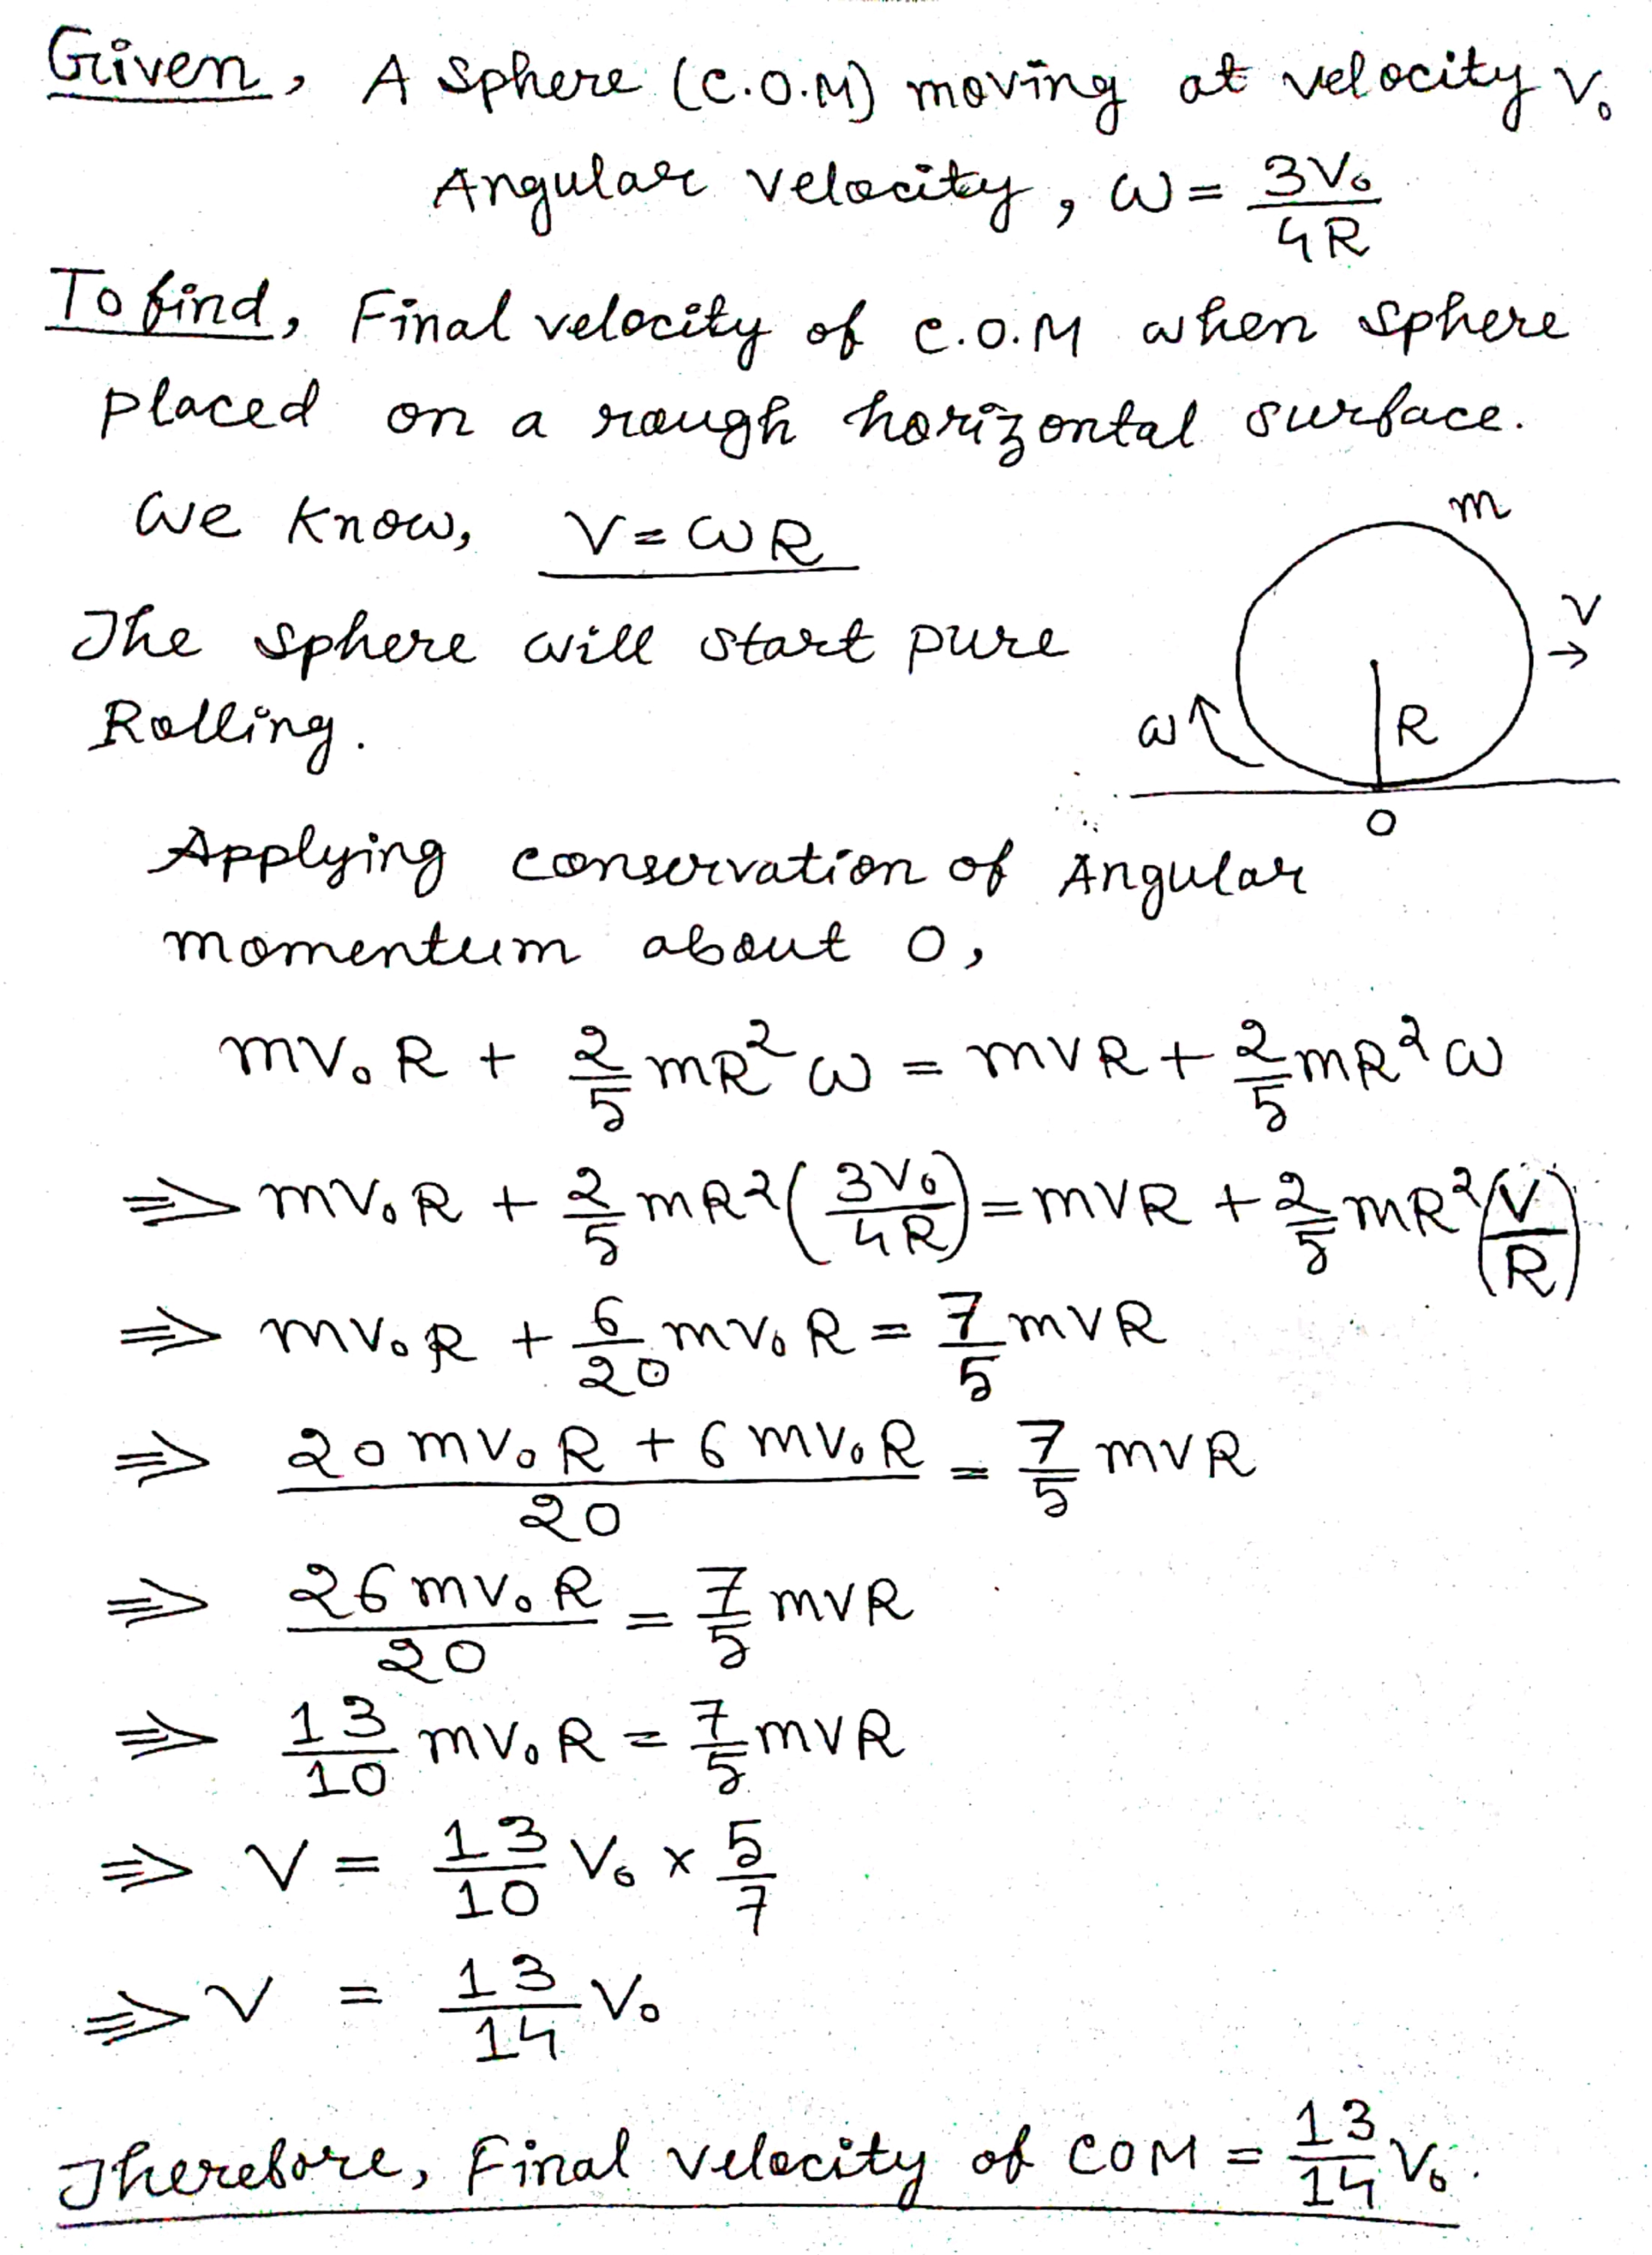 Given, A Sphere (C.O.M) moving at velocity V₀
Angular velocity, ω = 3V₀/4R
To find, Final velocity of C.O.M when sphere
placed on a rough horizontal surface.
We know, V = ωR
m
V
→
The sphere will start pure
Rolling.
ω
R
O
Applying conservation of Angular
momentum about O,
mV₀R + 2/5 mR²ω = mVR + 2/5 mR²ω
⇒ mV₀R + 2/5 mR²(3V₀/4R) = mVR + 2/5 mR²(V/R)
⇒ mV₀R + 6/20 mV₀R = 7/5 mVR
⇒ (20mV₀R + 6mV₀R)/20 = 7/5 mVR
⇒ 26mV₀R/20 = 7/5 mVR
⇒ 13/10 mV₀R = 7/5 mVR
⇒ V = 13/10 V₀ × 5/7
⇒ V = 13/14 V₀
Therefore, Final velocity of COM = 13/14 V₀.